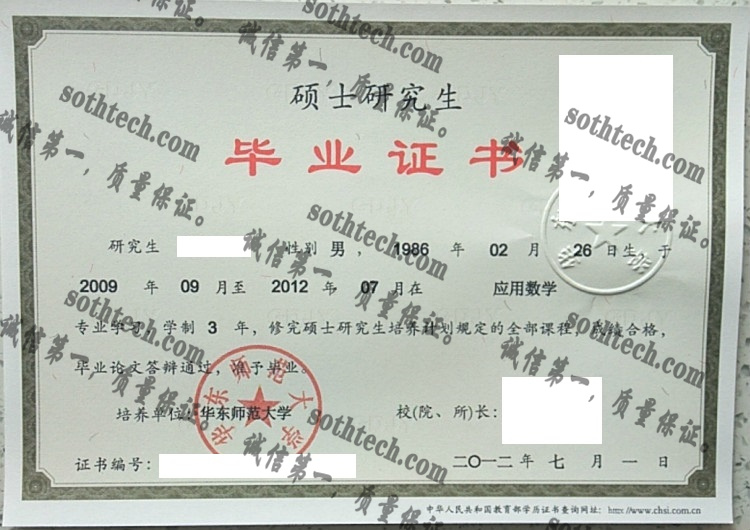 硕士研究生
毕业证书
研究生 性别 男 , 1986 年 02 月 26 日生 于
2009 年 09 月至 2012 年 07 月在 应用数学
专业学习, 学制 3 年, 修完硕士研究生培养计划规定的全部课程, 成绩合格,
毕业论文答辩通过, 准予毕业。
培养单位: 华东师范大学 校(院、所)长:
华东师范大学
证书编号: 二〇一二年 七 月 一 日
中华人民共和国教育部学历证书查询网址: http://www.chsi.com.cn
sothtech.com
诚信第一,质量保证。
sothtech.com
诚信第一,质量保证。
sothtech.com
诚信第一,质量保证。
sothtech.com
诚信第一,质量保证。
sothtech.com
诚信第一,质量保证。
sothtech.com
诚信第一,质量保证。
sothtech.com
诚信第一,质量保证。